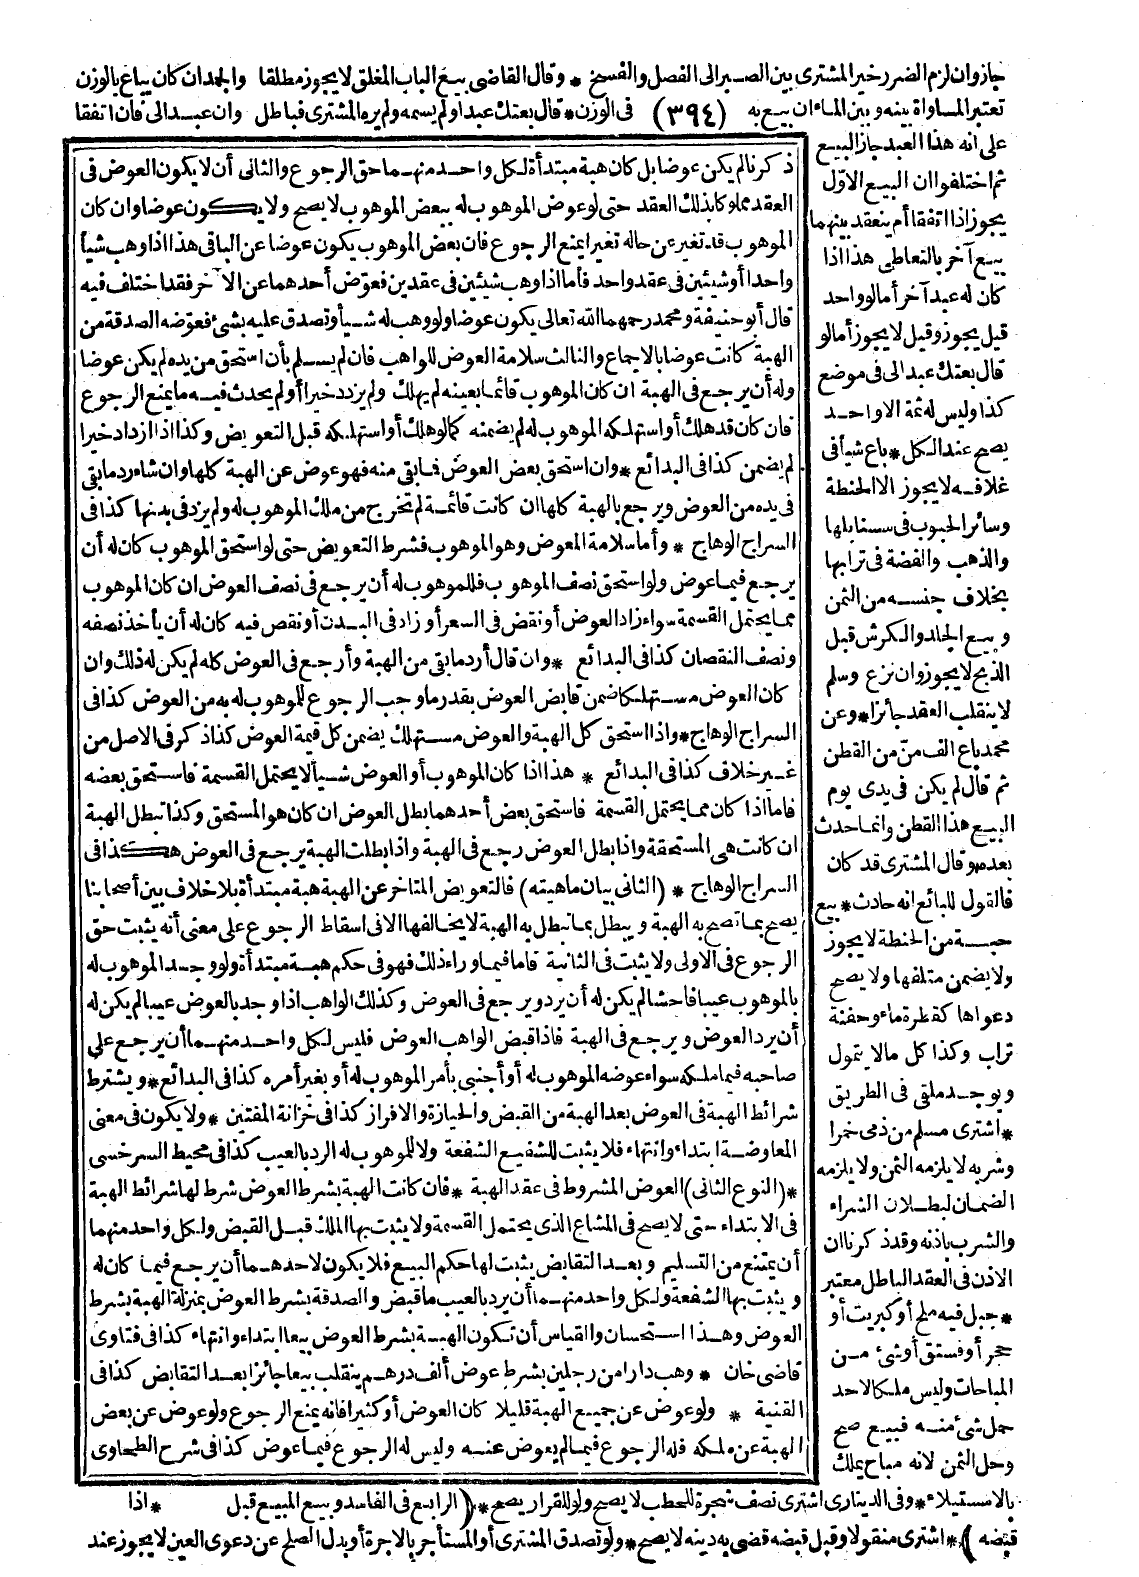 جاز وان لزم الضرر خير المشترى بين الصبر الى الفصل والفسخ * وقال القاضى بيع الباب المغلق لا يجوز مطلقا والجمدان كان يباع بالوزن
تعتبر المساواة بينه وبين الماء ان بيع به (٣٩٤) فى الوزن * قال بعتك عبدا ولم يسمه ولم يره المشترى فباطل وان عبدالى فان اتفقا
على أنه هذا العبد جاز البيع
ثم اختلفوا ان البيع الاوّل
يجوز اذا اتفقا أم ينعقد بينهما
بيع آخر بالتعاطى هذا اذا
كان له عبد آخر أما لو واحد
قيل يجوز وقيل لا يجوز أما لو
قال بعتك عبدالى فى موضع
كذا وليس له ثمة الا واحد
يصح عند الكل * باع شيأ فى
غلافه لا يجوز الا الحنطة
وسائر الحبوب فى سنابلها
والذهب والفضة فى ترابها
بخلاف جنسه من الثمن
وبيع الجلد والكرش قبل
الذبح لا يجوز وان نزع وسلم
لا ينقلب العقد جائزا * وعن
محمد باع الف منّ من القطن
ثم قال لم يكن فى يدى يوم
البيع هذا القطن وانما حدث
بعده وقال المشترى قد كان
فالقول للبائع انه حادث * بيع
حبة من الحنطة لا يجوز
ولا يضمن متلفها ولا يصح
دعواها كقطرة ماء وحفنة
تراب وكذا كل مالا يتمول
ويوجد ملقى فى الطريق
* اشترى مسلم من ذمى خمرا
وشربه لا يلزمه الثمن ولا يلزمه
الضمان لبطلان الشراء
والشرب باذنه وقد ذكرنا ان
الاذن فى العقد الباطل معتبر
* جبل فيه ملح أو كبريت أو
حجر أو فستق أو شئ من
المباحات وليس ملكا لاحد
حمل شئ منه فبيع صح
وحل الثمن لانه مباح يملك
ذكرنا لم يكن عوضا بل كان هبة مبتدأة لكل واحد منهما حق الرجوع والثانى أن لا يكون العوض فى
العقد مملوكا بذلك العقد حتى لو عوض الموهوب له ببعض الموهوب لا يصح ولا يكون عوضا وان كان
الموهوب قد تغير عن حاله تغيرا يمنع الرجوع فان بعض الموهوب يكون عوضا عن الباقى هذا اذا وهب شيأ
واحدا أو شيئين فى عقد واحد فأما اذا وهب شيئين فى عقدين فعوض أحدهما عن الآخر فقد اختلف فيه
قال أبو حنيفة ومحمد رحمهما الله تعالى يكون عوضا ولو وهب له شيأ وتصدق عليه بشئ فعوّضه الصدقة من
الهبة كانت عوضا بالاجماع والثالث سلامة العوض للواهب فان لم يسلم بأن استحق من يده لم يكن عوضا
وله أن يرجع فى الهبة ان كان الموهوب قائما بعينه لم يهلك ولم يزدد خيرا أو لم يحدث فيه ما يمنع الرجوع
فان كان قد هلك أو استهلكه الموهوب له لم يضمنه كما لو هلك أو استهلكه قبل التعويض وكذا اذا ازداد خيرا
لم يضمن كذا فى البدائع * وان استحق بعض العوض فما بقى منه فهو عوض عن الهبة كلها وان شاء رد ما بقى
فى يده من العوض ويرجع بالهبة كلها ان كانت قائمة لم تخرج من ملك الموهوب له ولم يزد فى بدنها كذا فى
السراج الوهاج * وأما سلامة المعوض وهو الموهوب فشرط التعويض حتى لو استحق الموهوب كان له أن
يرجع فيما عوض ولو استحق نصف الموهوب فللموهوب له أن يرجع فى نصف العوض ان كان الموهوب
مما يحتمل القسمة سواء زاد العوض أو نقص فى السعر أو زاد فى البدن أو نقص فيه كان له أن يأخذ نصفه
ونصف النقصان كذا فى البدائع * وان قال أرد ما بقى من الهبة وأرجع فى العوض كله لم يكن له ذلك وان
كان العوض مستهلكا ضمن قابض العوض بقدر ما وجب الرجوع للموهوب له به من العوض كذا فى
السراج الوهاج * واذا استحق كل الهبة والعوض مستهلك يضمن كل قيمة العوض كذا ذكر فى الاصل من
غير خلاف كذا فى البدائع * هذا اذا كان الموهوب أو العوض شيأ لا يحتمل القسمة فاستحق بعضه
فاما اذا كان مما يحتمل القسمة فاستحق بعض أحدهما بطل العوض ان كان هو المستحق وكذا تبطل الهبة
ان كانت هى المستحقة واذا بطل العوض رجع فى الهبة واذا بطلت الهبة يرجع فى العوض هكذا فى
السراج الوهاج * (الثانى بيان ماهيته) فالتعويض المتاخر عن الهبة هبة مبتدأة بلا خلاف بين أصحابنا
يصح بما تصح به الهبة ويبطل بما تبطل به الهبة لا يخالفها الا فى اسقاط الرجوع على معنى أنه يثبت حق
الرجوع فى الاولى ولا يثبت فى الثانية فاما فيما وراء ذلك فهو فى حكم هبة مبتدأة ولو وجد الموهوب له
بالموهوب عيبا فاحشا لم يكن له أن يرد ويرجع فى العوض وكذلك الواهب اذا وجد بالعوض عيبا لم يكن له
أن يرد العوض ويرجع فى الهبة فاذا قبض الواهب العوض فليس لكل واحد منهما أن يرجع على
صاحبه فيما ملكه سواء عوضه الموهوب له أو أجنبى بأمر الموهوب له أو بغير أمره كذا فى البدائع * ويشترط
شرائط الهبة فى العوض بعد الهبة من القبض والحيازة والافراز كذا فى خزانة المفتين * ولا يكون فى معنى
المعاوضة ابتداء وانتهاء فلا يثبت للشفيع الشفعة ولا للموهوب له الرد بالعيب كذا فى محيط السرخسى
* (النوع الثانى) العوض المشروط فى عقد الهبة * فان كانت الهبة بشرط العوض شرط لها شرائط الهبة
فى الابتداء حتى لا يصح فى المشاع الذى يحتمل القسمة ولا يثبت بها الملك قبل القبض ولكل واحد منهما
أن يمتنع من التسليم وبعد التقابض يثبت لها حكم البيع فلا يكون لاحدهما أن يرجع فيما كان له
ويثبت بها الشفعة ولكل واحد منهما أن يرد بالعيب ما قبض والصدقة بشرط العوض بمنزلة الهبة بشرط
العوض وهذا استحسان والقياس أن تكون الهبة بشرط العوض بيعا ابتداء وانتهاء كذا فى فتاوى
قاضى خان * وهب دارا من رجلين بشرط عوض ألف درهم ينقلب بيعا جائزا بعد التقابض كذا فى
القنية * ولو عوض عن جميع الهبة قليلا كان العوض أو كثيرا فانه يمنع الرجوع ولو عوض عن بعض
الهبة عن ملكه فله الرجوع فيما لم يعوض عنه وليس له الرجوع فيما عوض كذا فى شرح الطحاوى
بالاستيلاء * وفى الدينارى اشترى نصف شجرة للحطب لا يصح ولو للقرار يصح * (الرابع فى الفاسد وبيع المبيع قبل * اذا
قبضه) * اشترى منقولا وقبل قبضه قضى به دينه لا يصح * ولو تصدق المشترى أو المستأجر بالاجرة أو بدل الصلح عن دعوى العين لا يجوز عند